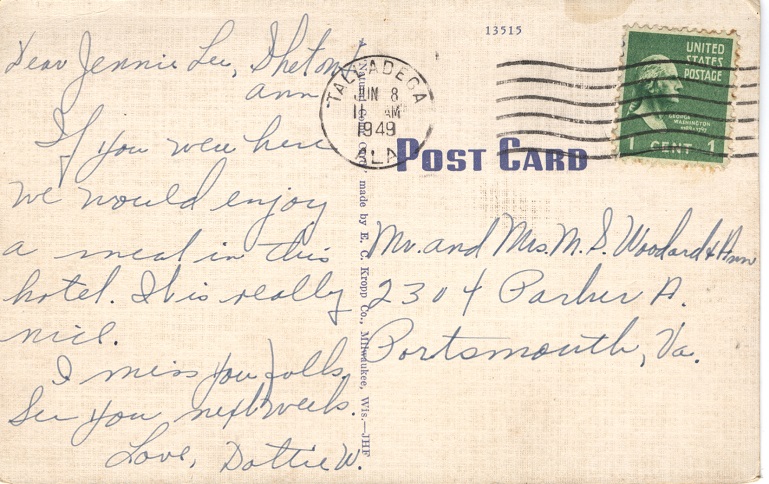 13515
UNITED
STATES
POSTAGE
GEORGE
WASHINGTON
1 CENT 1
TALLADEGA
JUN 8
11 AM
1949
ALA
POST CARD
Dear Jennie Lee, Shelton &
Ann
If you were here
we would enjoy
a meal in this
hotel. It is really
nice.
I miss you folks.
See you next week.
Love, Dottie W.
made by E. C. Kropp Co., Milwaukee, Wis.—JHF
Mr. and Mrs. M. S. Woodard & Ann
2304 Parker A.
Portsmouth, Va.